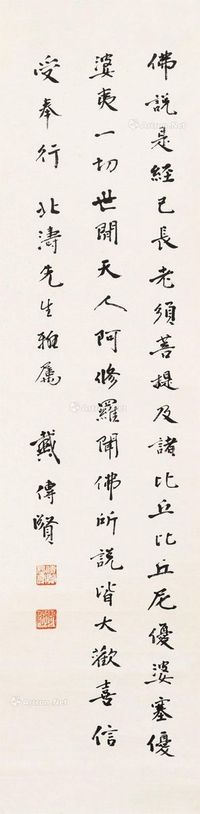 佛説是經已長老須菩提及諸比丘比丘尼優婆塞優
婆夷一切世間天人阿修羅聞佛所説皆大歡喜信
受奉行 北濤先生雅屬 戴傳賢